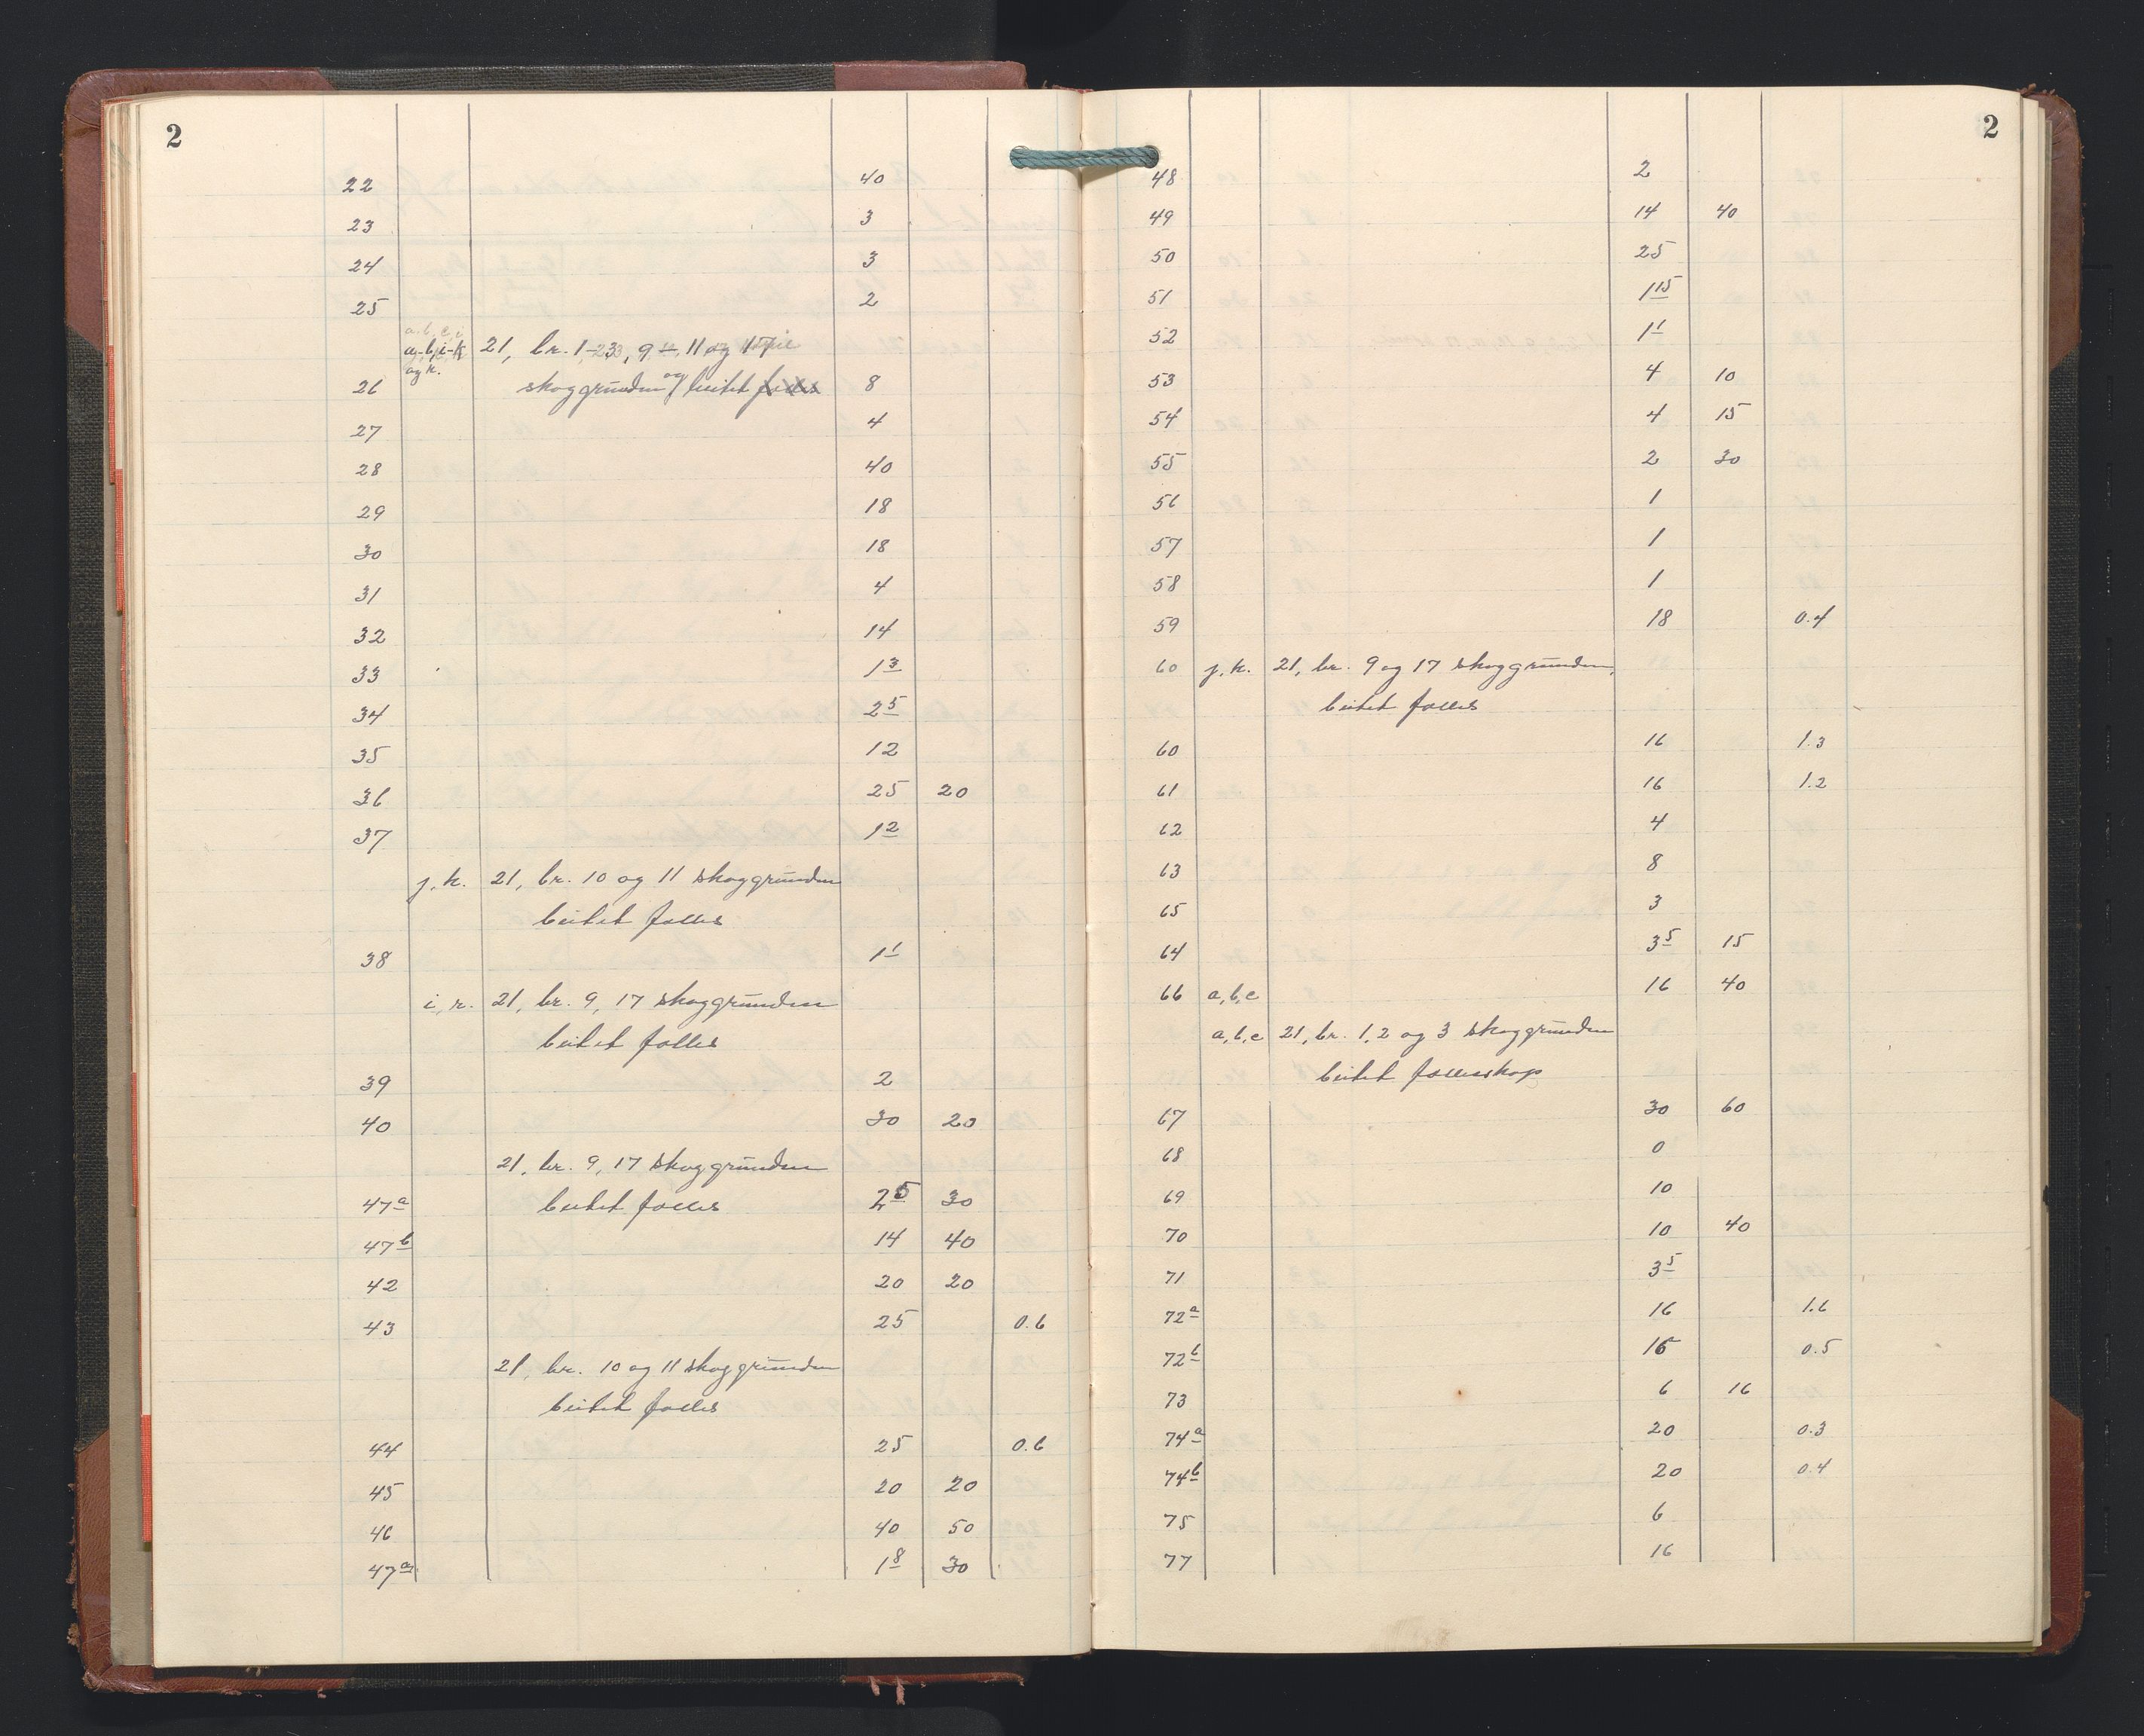 2
22 40
23 3
24 3
25 2
21, br.
og k.
26 skoggrunden og beitet 8
27 4
28 40
29 18
30 18
31 4
32 14
33 1 3
34 2 5
35 12
36 25 20
37 1 2
j, k. 21, br. 10 og 11 skoggrunden
beitet fælles
38 1 1
i, r. 21, br. 9, 17 skoggrunden
beitet fælles
39 2
40 30 20
21, br. 9, 17 skoggrunden
47 a beitet fælles 2 5 30
47 b 14 40
42 20 20
43 25 0.6
21, br. 10 og 11 skoggrunden
beitet fælles
44 25 0.6
45 20 20
46 40 50
47 a 1 8 30
2
48 2
49 14 40
50 25
51 1 15
52 1 1
53 4 10
54 4 15
55 2 30
56 1
57 1
58 1
59 18 0.4
60 j, k. 21, br. 9 og 17 skoggrunden,
beitet fælles
60 16 1.3
61 16 1.2
62 4
63 8
65 3
64 3 5 15
66 a, b, c 16 40
a, b, c 21, br. 1, 2 og 3 skoggrunden
beitet fællesskap
67 30 60
68 0
69 10
70 10 40
71 3 5
72 a 16 1.6
72 b 16 0.5
73 6 16
74 a 20 0.3
74 b 20 0.4
75 6
77 16